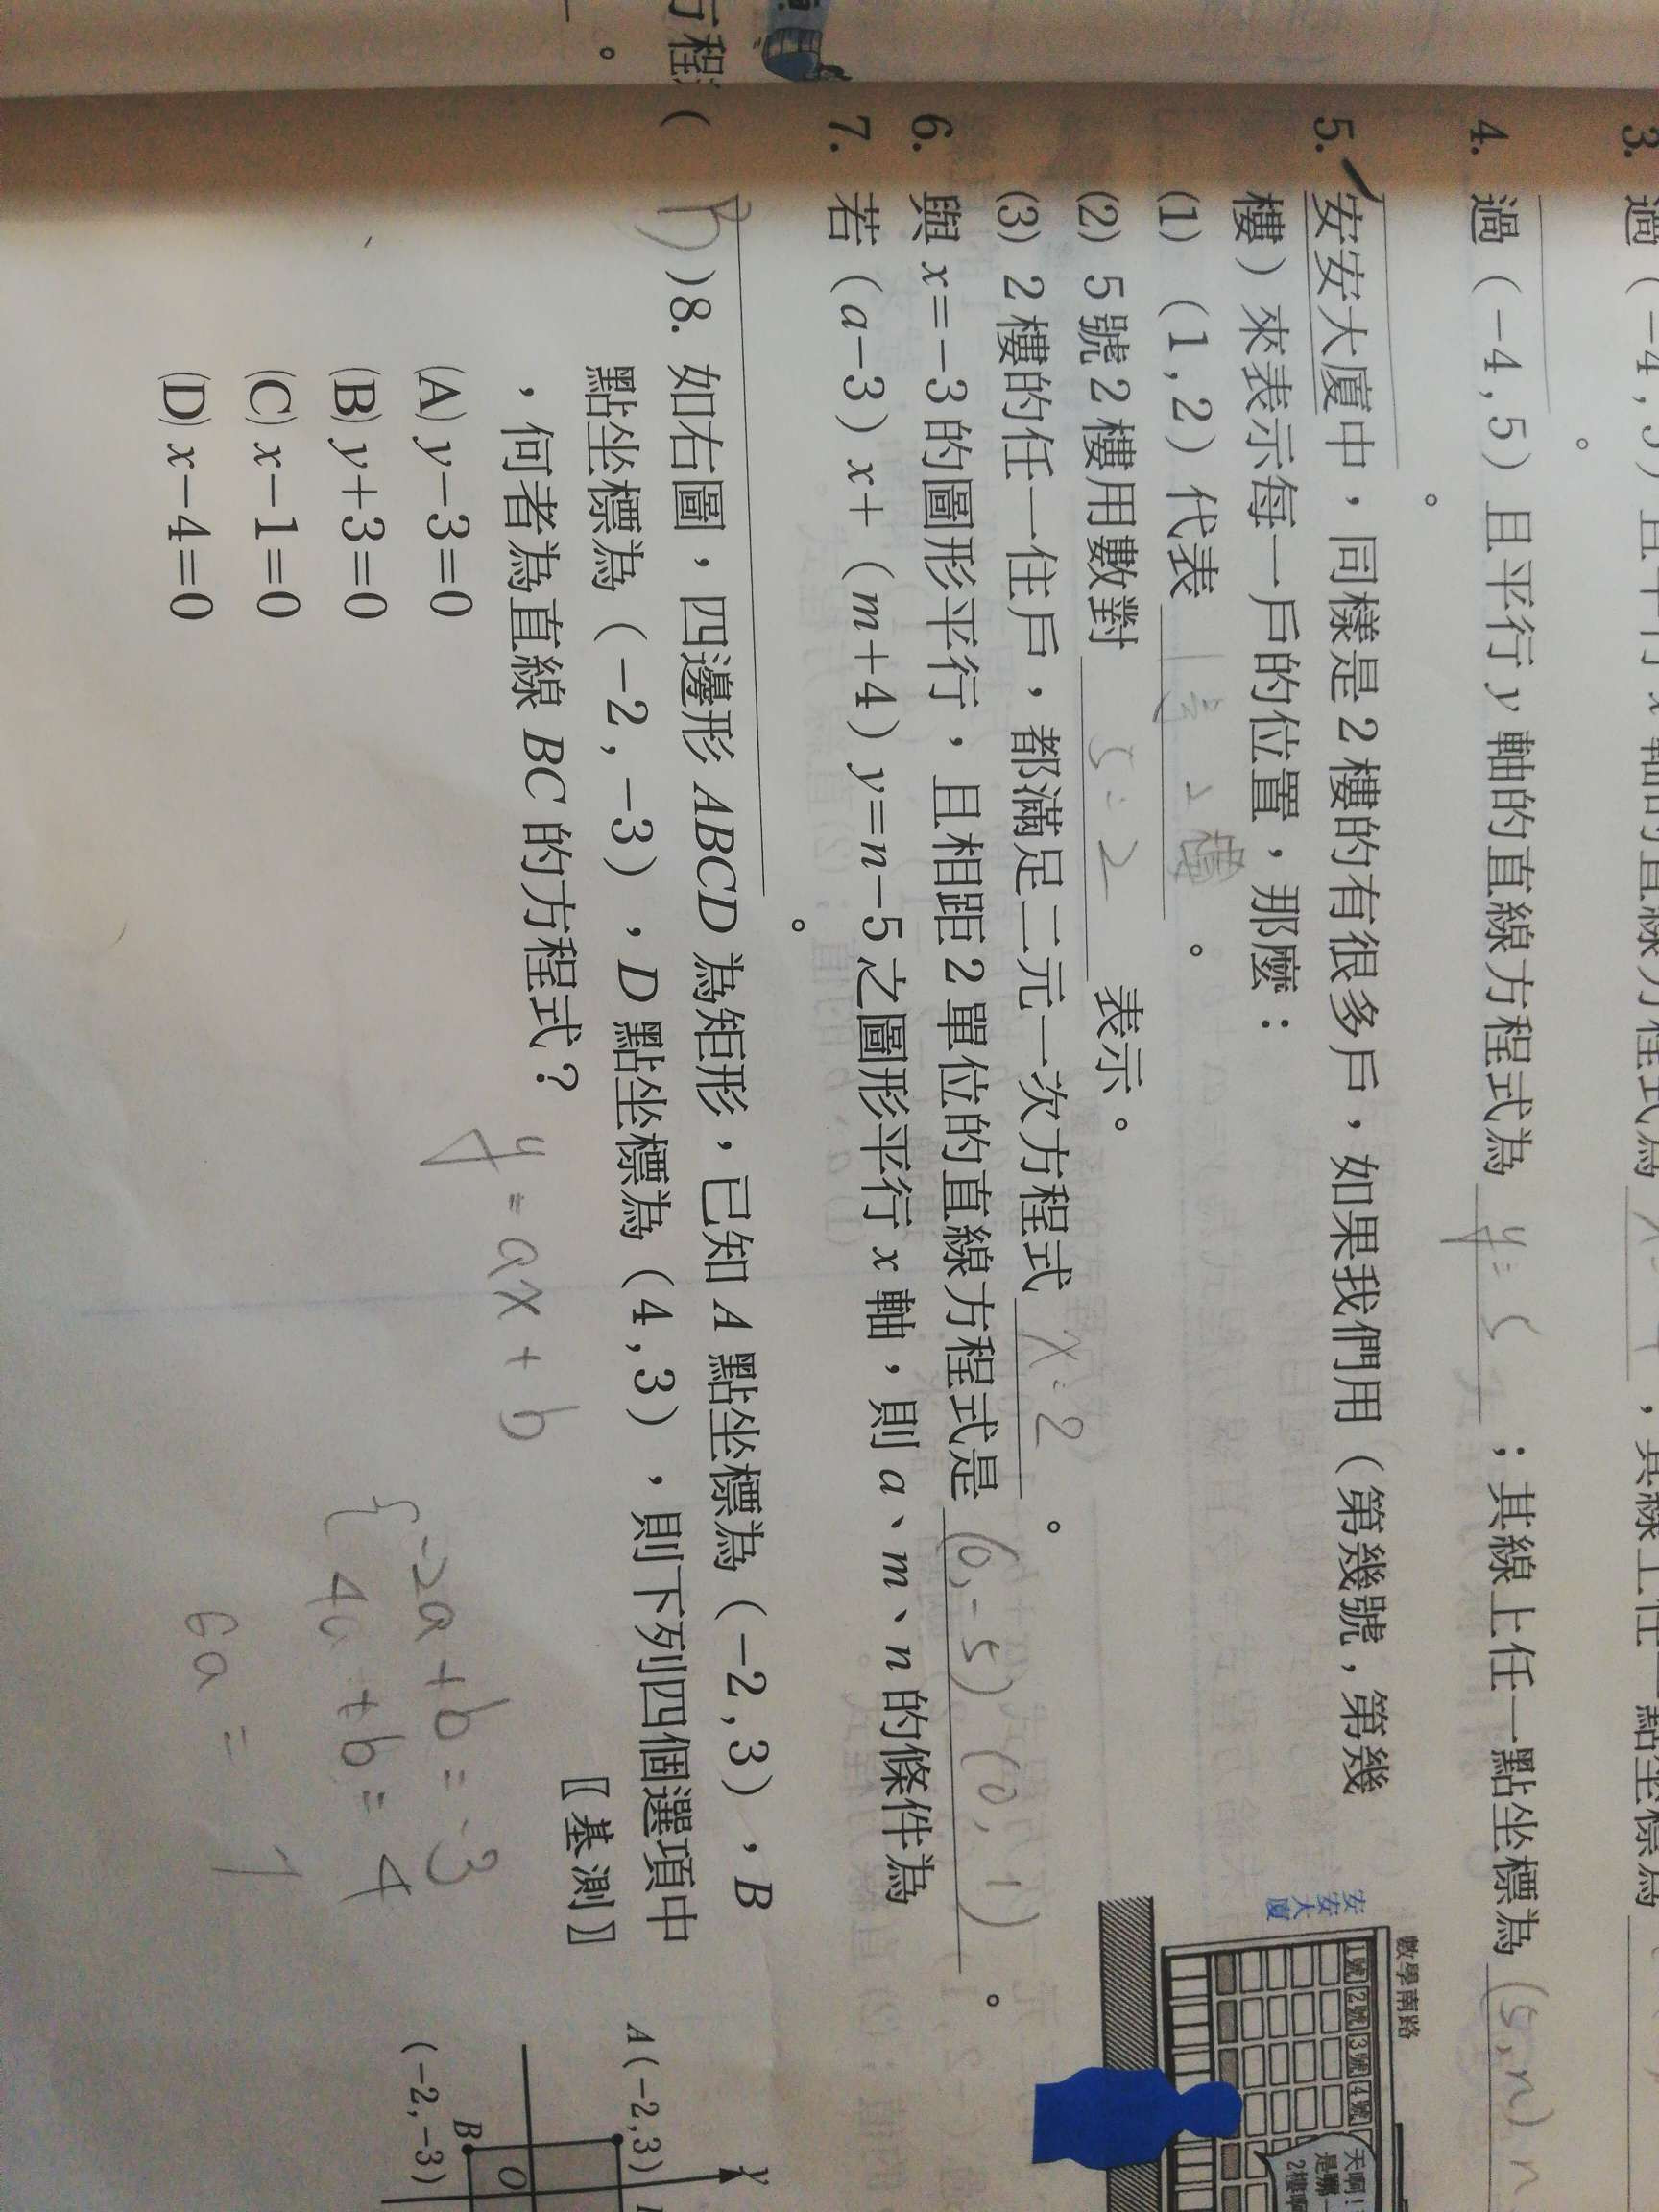 3. 過（-4,5）且平行 x 軸的直線方程式為
，其線上任一點坐標為
。
4. 過（-4,5）且平行 y 軸的直線方程式為 y=5 ；其線上任一點坐標為 (5,n) n
。
5. 安安大廈中，同樣是2樓的有很多戶，如果我們用（第幾號,第幾
樓）來表示每一戶的位置，那麼：
(1)（1,2）代表 1号 2樓 。
(2) 5號2樓用數對 5:2 表示。
(3) 2樓的任一住戶，都滿足二元一次方程式 x=2 。
6. 與 x=-3的圖形平行，且相距2單位的直線方程式是 (0,-5) (0,1) 。
7. 若（a-3）x+（m+4）y=n-5之圖形平行 x 軸，則 a、m、n 的條件為
。
數學南路
安安大廈
1號 2號 3號 4號
天啊！
是哪一
2樓啊
行程
( )8. 如右圖，四邊形 ABCD 為矩形，已知 A 點坐標為（-2,3），B
點坐標為（-2,-3），D 點坐標為（4,3），則下列四個選項中
，何者為直線 BC 的方程式？ 〖基測〗
(A) y-3=0
(B) y+3=0
(C) x-1=0
(D) x-4=0
y=ax+b
-2a+b=-3
4a+b=4
6a= 7
A(-2,3)
y
B
O
(-2,-3)